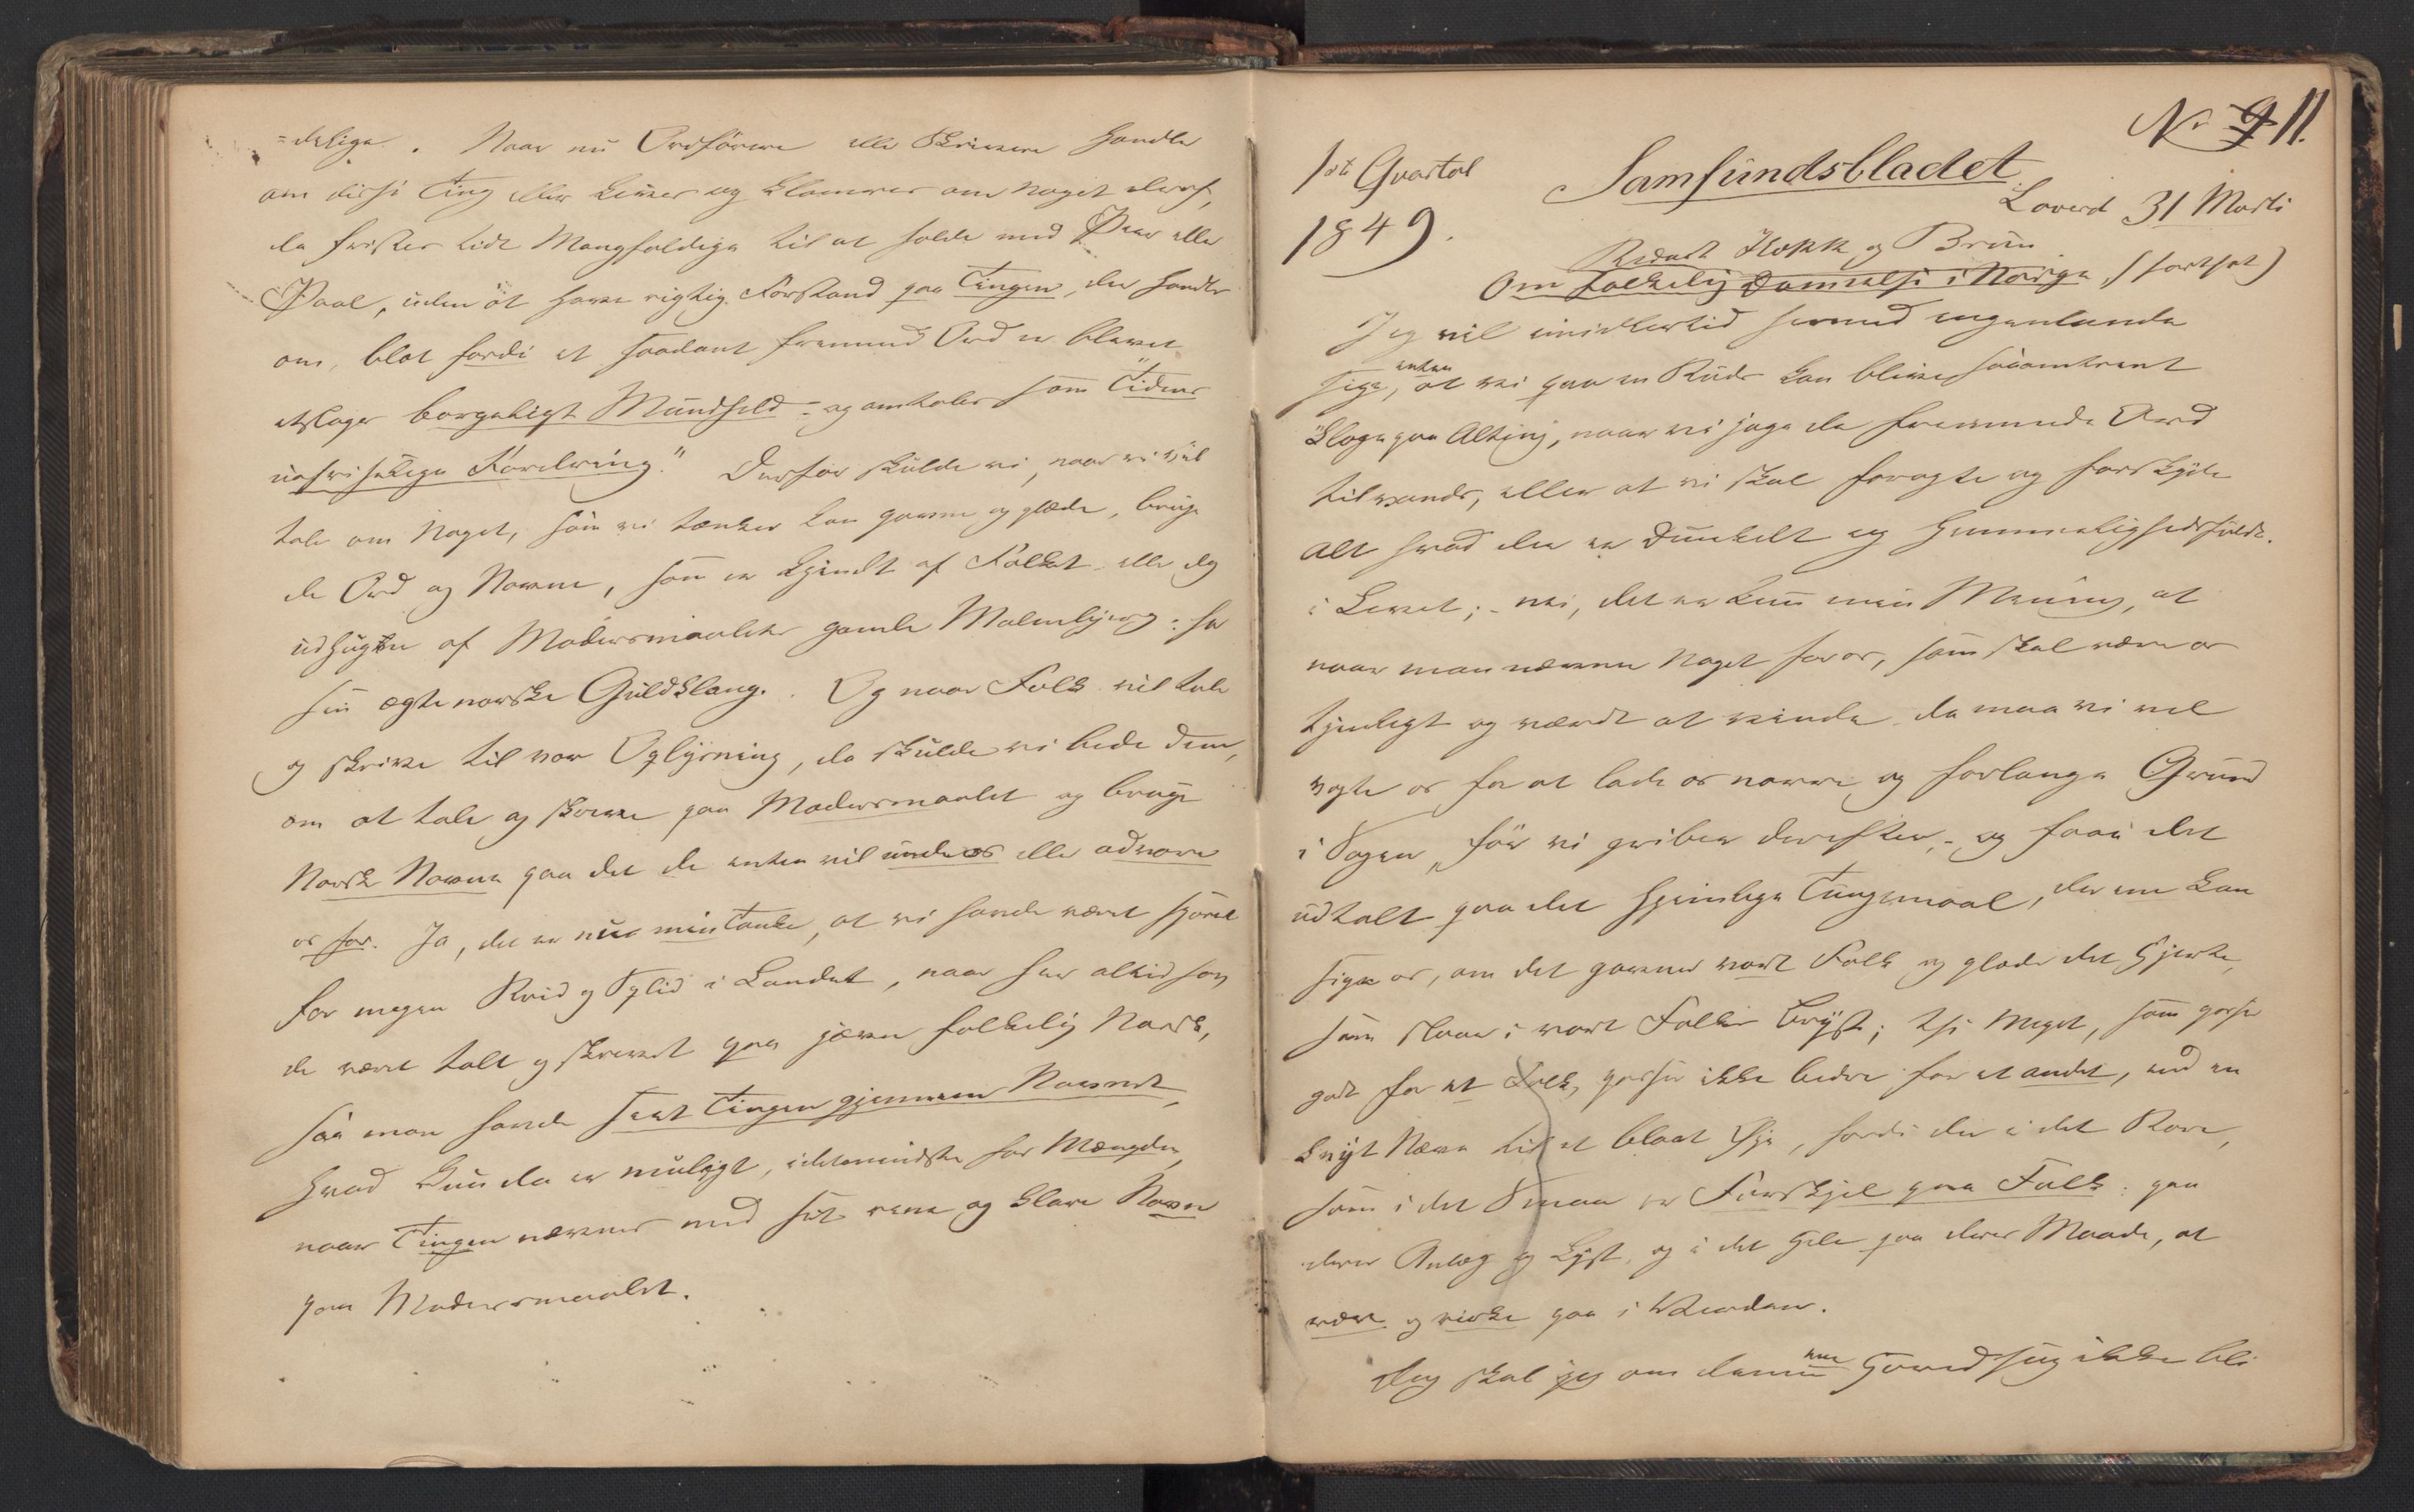 =delige. Naar nu Ordförere elle Skrivere handle
om disse Ting eller lärer og klamrer om noget deraf,
da frister tidt Mangfoldige til at holde med Peer elle
Paal, uden at have rigtig Forstand paa Tingen, der handles
om, blot fordi et saadant fremmed Ord er blevet
etslags borgeligt Mundheld - og omtales som Tidens
uafviselige Fordring." Derfor skulde vi, naar vi vil
tale om Noget, som vi tænker kan gavne og glæde, bruge
de Ord og Navne, som er kjendt af Folket elle dog
udhugne af Modersmaalets gamle Malmbjerg: ha
sin ægte norske Guldklang. Og naar Folk vil tale
og skrive til vor Oplysning, da skulde vi bede dem,
om at tale og skrive paa Modersmaalet og bruge
Norsk Navne paa det de enten vil unde os elle advare
os for. Ja, det er nu min Tanke, at vi havde været sparet
for megen Kvid og Splid i Landet, naar her altid havde
de været talt og skrevet paa jævn folkelig Norsk,
saa man havde seet Tingen gjennem Navnet,
hvad kun da er muligt, idetmindste for Mængden,
naar Tingen nævnes med sit rene og klare Navn
paa Modersmaalet.
No 9 11.
1ste Qvartal
Samfundsbladet
1849.
Löverd 31 Marts
Redact Kokk og Bruun
Om folkelig Dannelse i Norge (fortsat)
Jeg vil imidlertid hermed ingenlunde
sige, enten at vi paa en Studs kan blive saaomtrent
kloge paa Alting, naar vi jage de fremmede Ord
tilvands, eller at vi skal foragte og forskyde
alt hvad der er dunkelt og hemmelighedsfuldt
i Livet; - nei, det er kun min Mening, at
naar man nævner Noget for os, som skal være os
tjenligt og værdt at vinde da maa vi vel
vogte os for at lade os narre, og forlange Grund
i Sagen, för vi griber derefter, - og faaí det
udtalt paa det hjemlige Tungemaal, der ene kan
sige os, om det gavner vort Folk og glæde det Hjerte,
som slaar i vort Folks Bryst; thi Meget, som passer
godt for et Folk, passer ikke bedre for et andet, end en
knyt Næve til et blaat Öje, fordi der i det Store,
som i det Smaa er Forskjel paa Folk: paa
deres Anlæg og Lyst, og i det Hele paa deres Maade, at
være og virke paa i Verden.
Dog skal jeg om denne Hovedsag ikke bli